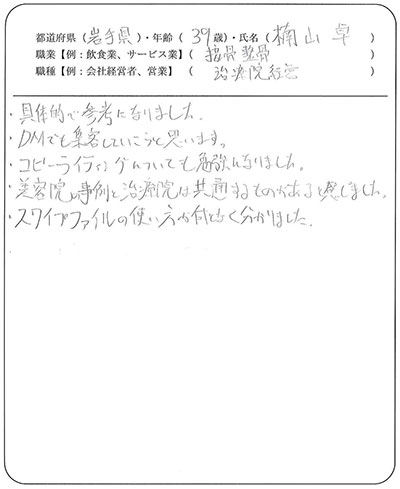 都道府県（岩手県）・年齢（39歳）・氏名（楠山 卓）
職業【例：飲食業、サービス業】（接骨整骨）
職種【例：会社経営者、営業】（治療院経営）
・具体的で参考になりました。
・DMでも集客していこうと思います。
・コピーライティングについても勉強になりました。
・美容院の事例と治療院は共通するものがあると感じました。
・スワイプファイルの使い方が何となく分かりました。